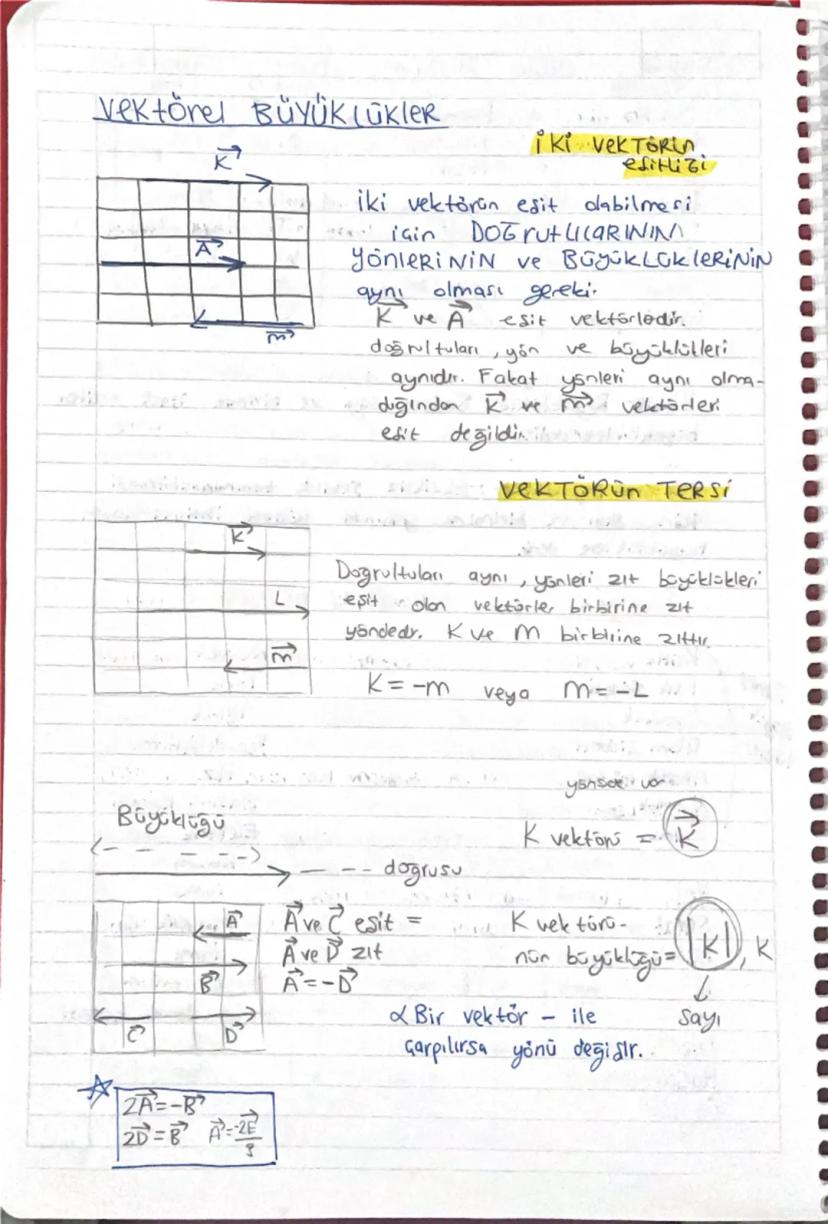 VEKTÖREL BÜYÜKLÜKLER
İKİ VEKTÖRÜN
EŞİTLİĞİ
K
A
m
İki vektörün eşit olabilmesi
için DOĞRUTLULARININ
YÖNLERİNİN ve BÜYÜKLÜKLERİNİN
aynı olması gereki.
K ve A eşit vektörlerdir.
doğrultuları, yön ve büyüklükleri
aynıdır. Fakat yönleri aynı olma-
dığından K ve m vektörleri
eşit değildir.
VEKTÖRÜN TERSİ
K
L
m
Doğrultuları aynı, yönleri zıt büyüklükleri
eşit olan vektörler birbirine zıt
yöndedir. K ve M birbirine zıttır.
K = -m veya m = -L
yönsede var
K vektörü = K
Büyüklüğü
doğrusu
A
B
C
D
A ve C eşit =
A ve D zıt
A = -D
K vektörü-
nün büyüklüğü = |K|, K
sayı
α Bir vektör - ile
çarpılırsa yönü değişir.
2A = -B
2D = B A = -2E/3